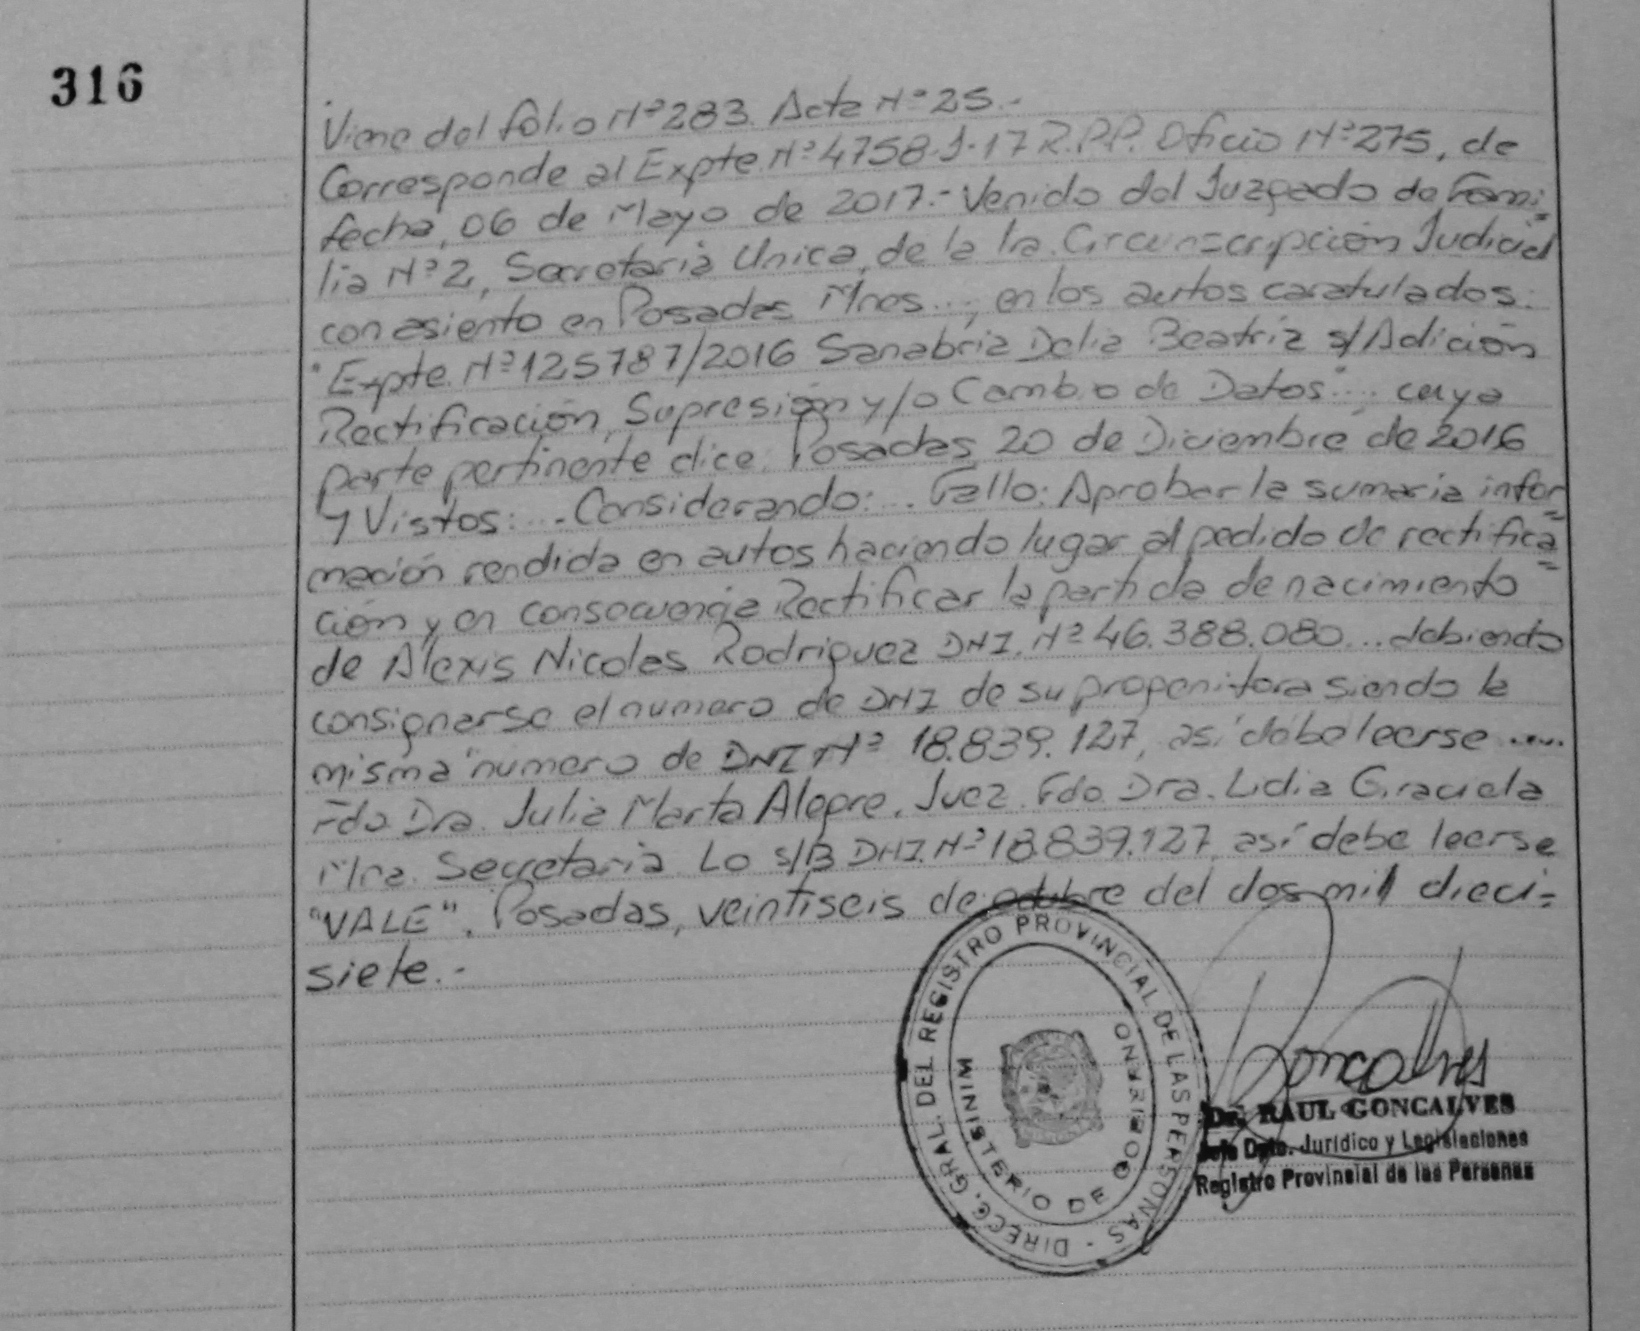 316
Viene del folio Nº 283. Acta Nº 25.-
Corresponde al Expte. Nº 4758-J-17 R.P.P. Oficio Nº 275, de
fecha, 06 de Mayo de 2017.- Venido del Juzgado de Fami=
lia Nº 2, Secretaria Unica, de la 1ra. Circunscripción Judicial
con asiento en Posadas Mnes..., en los autos caratulados:
"Expte. Nº 125787/2016 Sanabria Delia Beatriz s/Adición
Rectificación, Supresión y/o Cambio de Datos"... cuya
parte pertinente dice: Posadas 20 de Diciembre de 2016
Y Vistos: ... Considerando: ... Fallo: Aprobar la sumaria infor=
mación rendida en autos haciendo lugar al pedido de rectifica=
ción y en consecuencia Rectificar la partida de nacimiento
de Alexis Nicolas Rodriguez DNI. Nº 46.388.080... debiendo
consignarse el numero de DNI de su progenitora siendo la
misma "numero de DNI Nº 18.839.127, así debe leerse .....
Fdo Dra. Julia Marta Alegre. Juez. Fdo. Dra. Lidia Graciela
Secretaria. Lo s/B DNI. Nº 18.839.127, así debe leerse
"VALE". Posadas, veintiseis de octubre del dos mil dieci=
siete.-
DIRECC. GRAL. DEL REGISTRO PROVINCIAL DE LAS PERSONAS -
MINISTERIO DE GOBIERNO
Goncalves
Dr. RAUL GONCALVES
Jefe Dpto. Jurídico y Legislaciones
Registro Provincial de las Personas